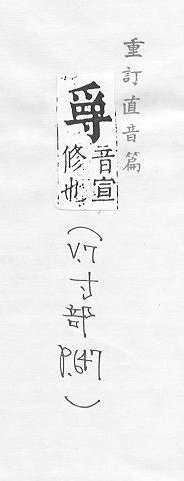 重訂直音篇
音宣
修也
(V.7 寸部 P.647)